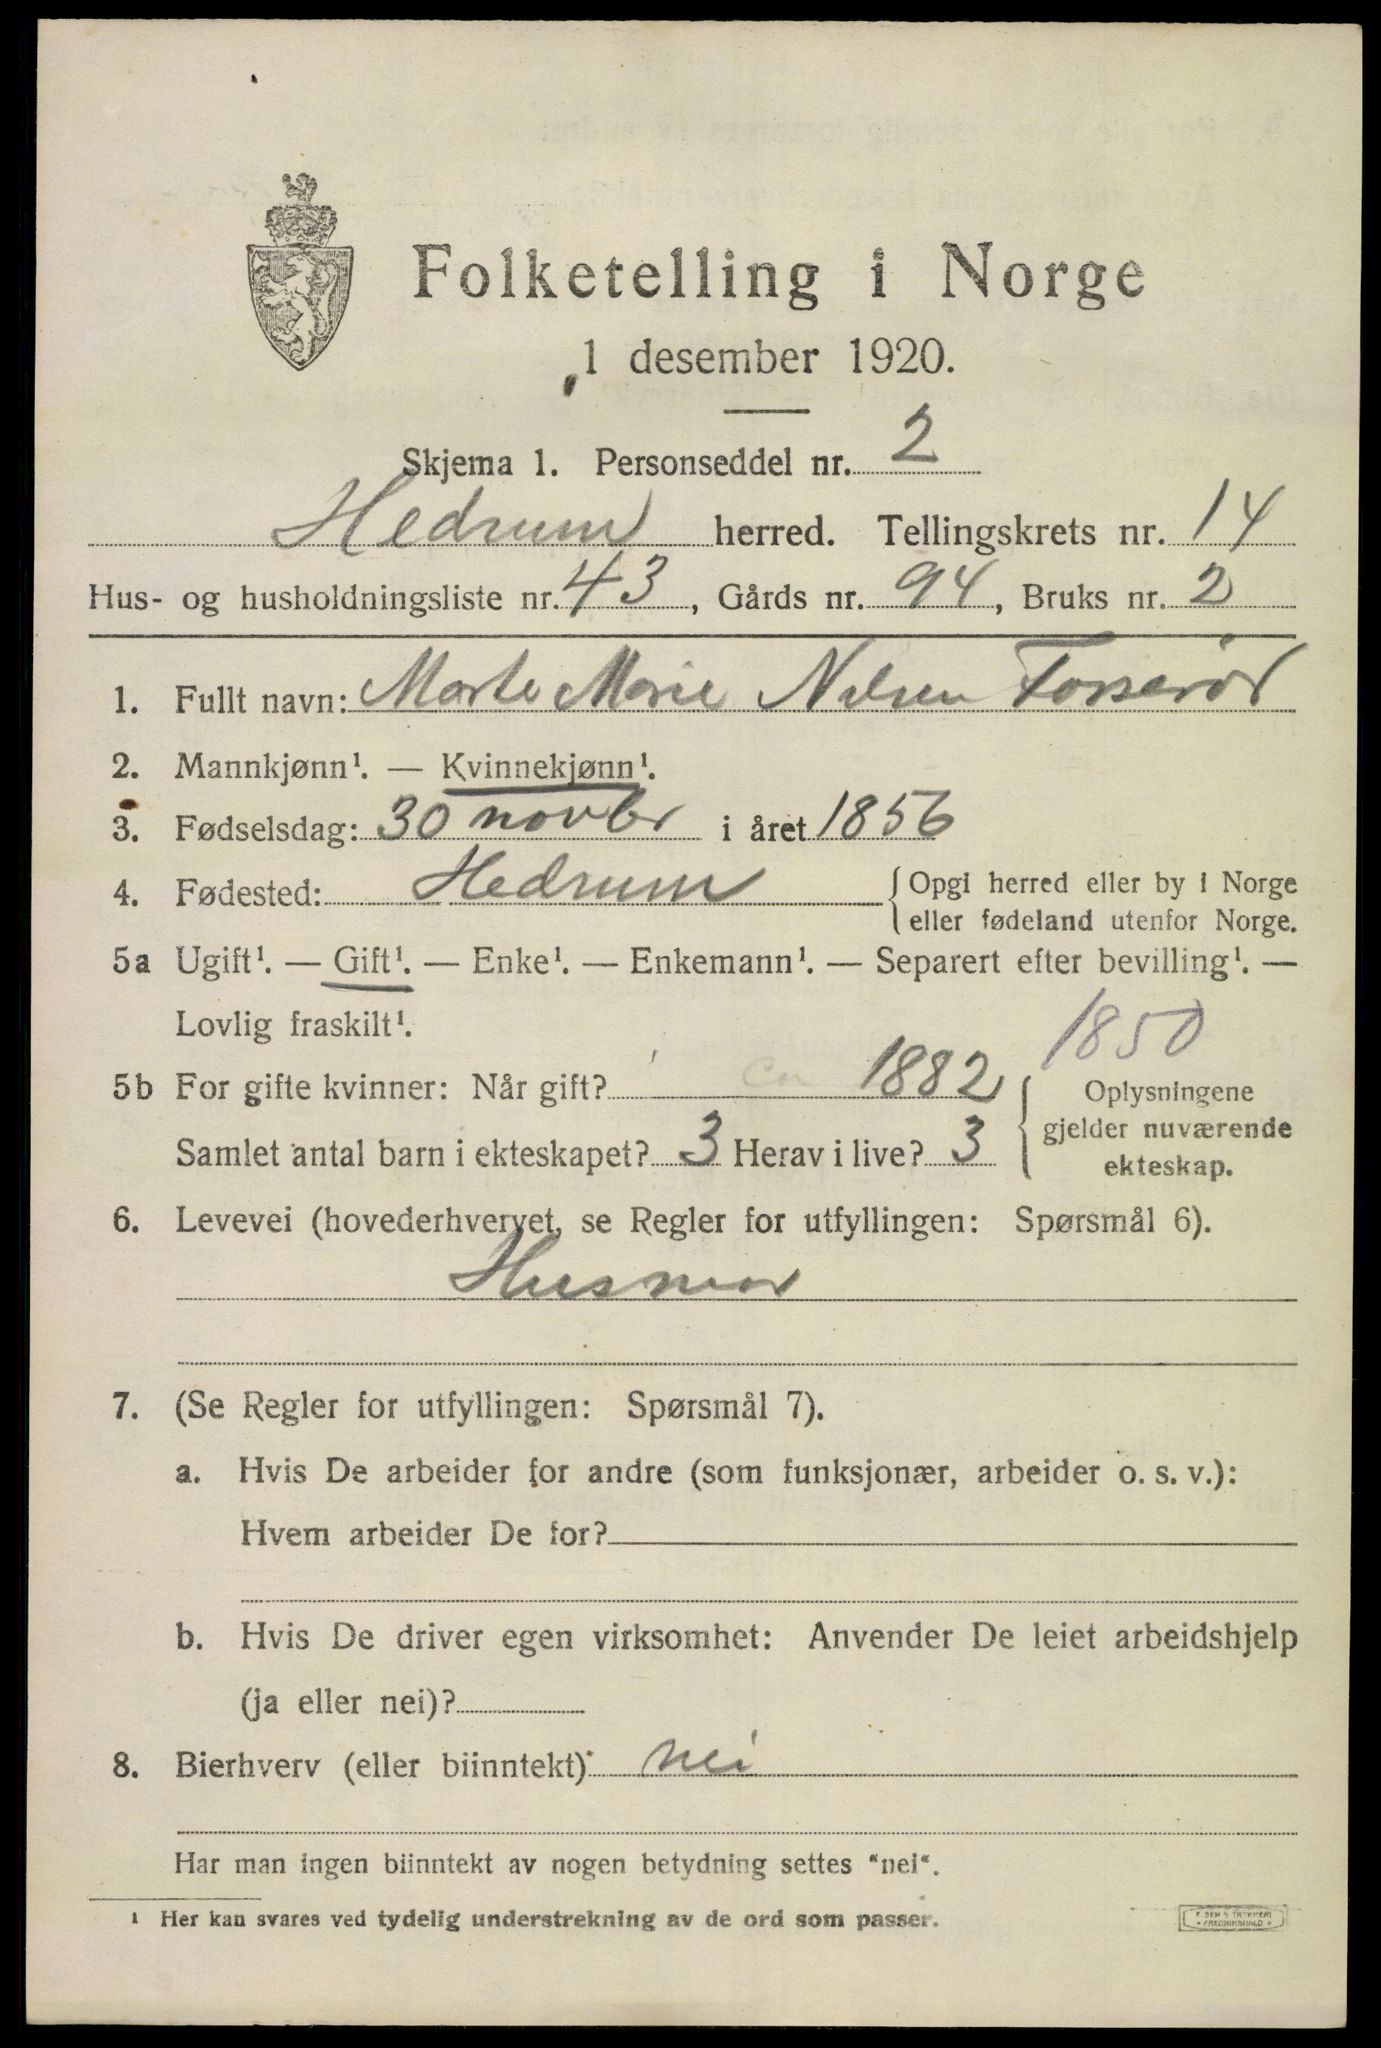 Folketelling i Norge
1 desember 1920.
Skjema 1. Personseddel nr. 2
Hedrum herred. Tellingskrets nr. 14
Hus- og husholdningsliste nr. 43, Gårds nr. 94, Bruks nr. 2
1. Fullt navn: Marte Marie Nilsen Fosserør
2. Mannkjønn¹. — Kvinnekjønn¹.
3. Fødselsdag: 30 novbr i året 1856
4. Fødested: Hedrum {Opgi herred eller by i Norge
eller fødeland utenfor Norge.
5a Ugift¹. — Gift¹. — Enke¹. — Enkemann¹. — Separert efter bevilling¹. —
Lovlig fraskilt¹.
1850
5b For gifte kvinner: Når gift? ca 1882 { Oplysningene
gjelder nuværende
Samlet antal barn i ekteskapet? 3 Herav i live? 3
ekteskap.
6. Levevei (hovederhvervet, se Regler for utfyllingen: Spørsmål 6).
Husmor
7. (Se Regler for utfyllingen: Spørsmål 7).
a. Hvis De arbeider for andre (som funksjonær, arbeider o. s. v.):
Hvem arbeider De for?
b. Hvis De driver egen virksomhet: Anvender De leiet arbeidshjelp
(ja eller nei)?
8. Bierhverv (eller biinntekt) nei
Har man ingen biinntekt av nogen betydning settes "nei".
¹ Her kan svares ved tydelig understrekning av de ord som passer.
FREDRIKSHALD